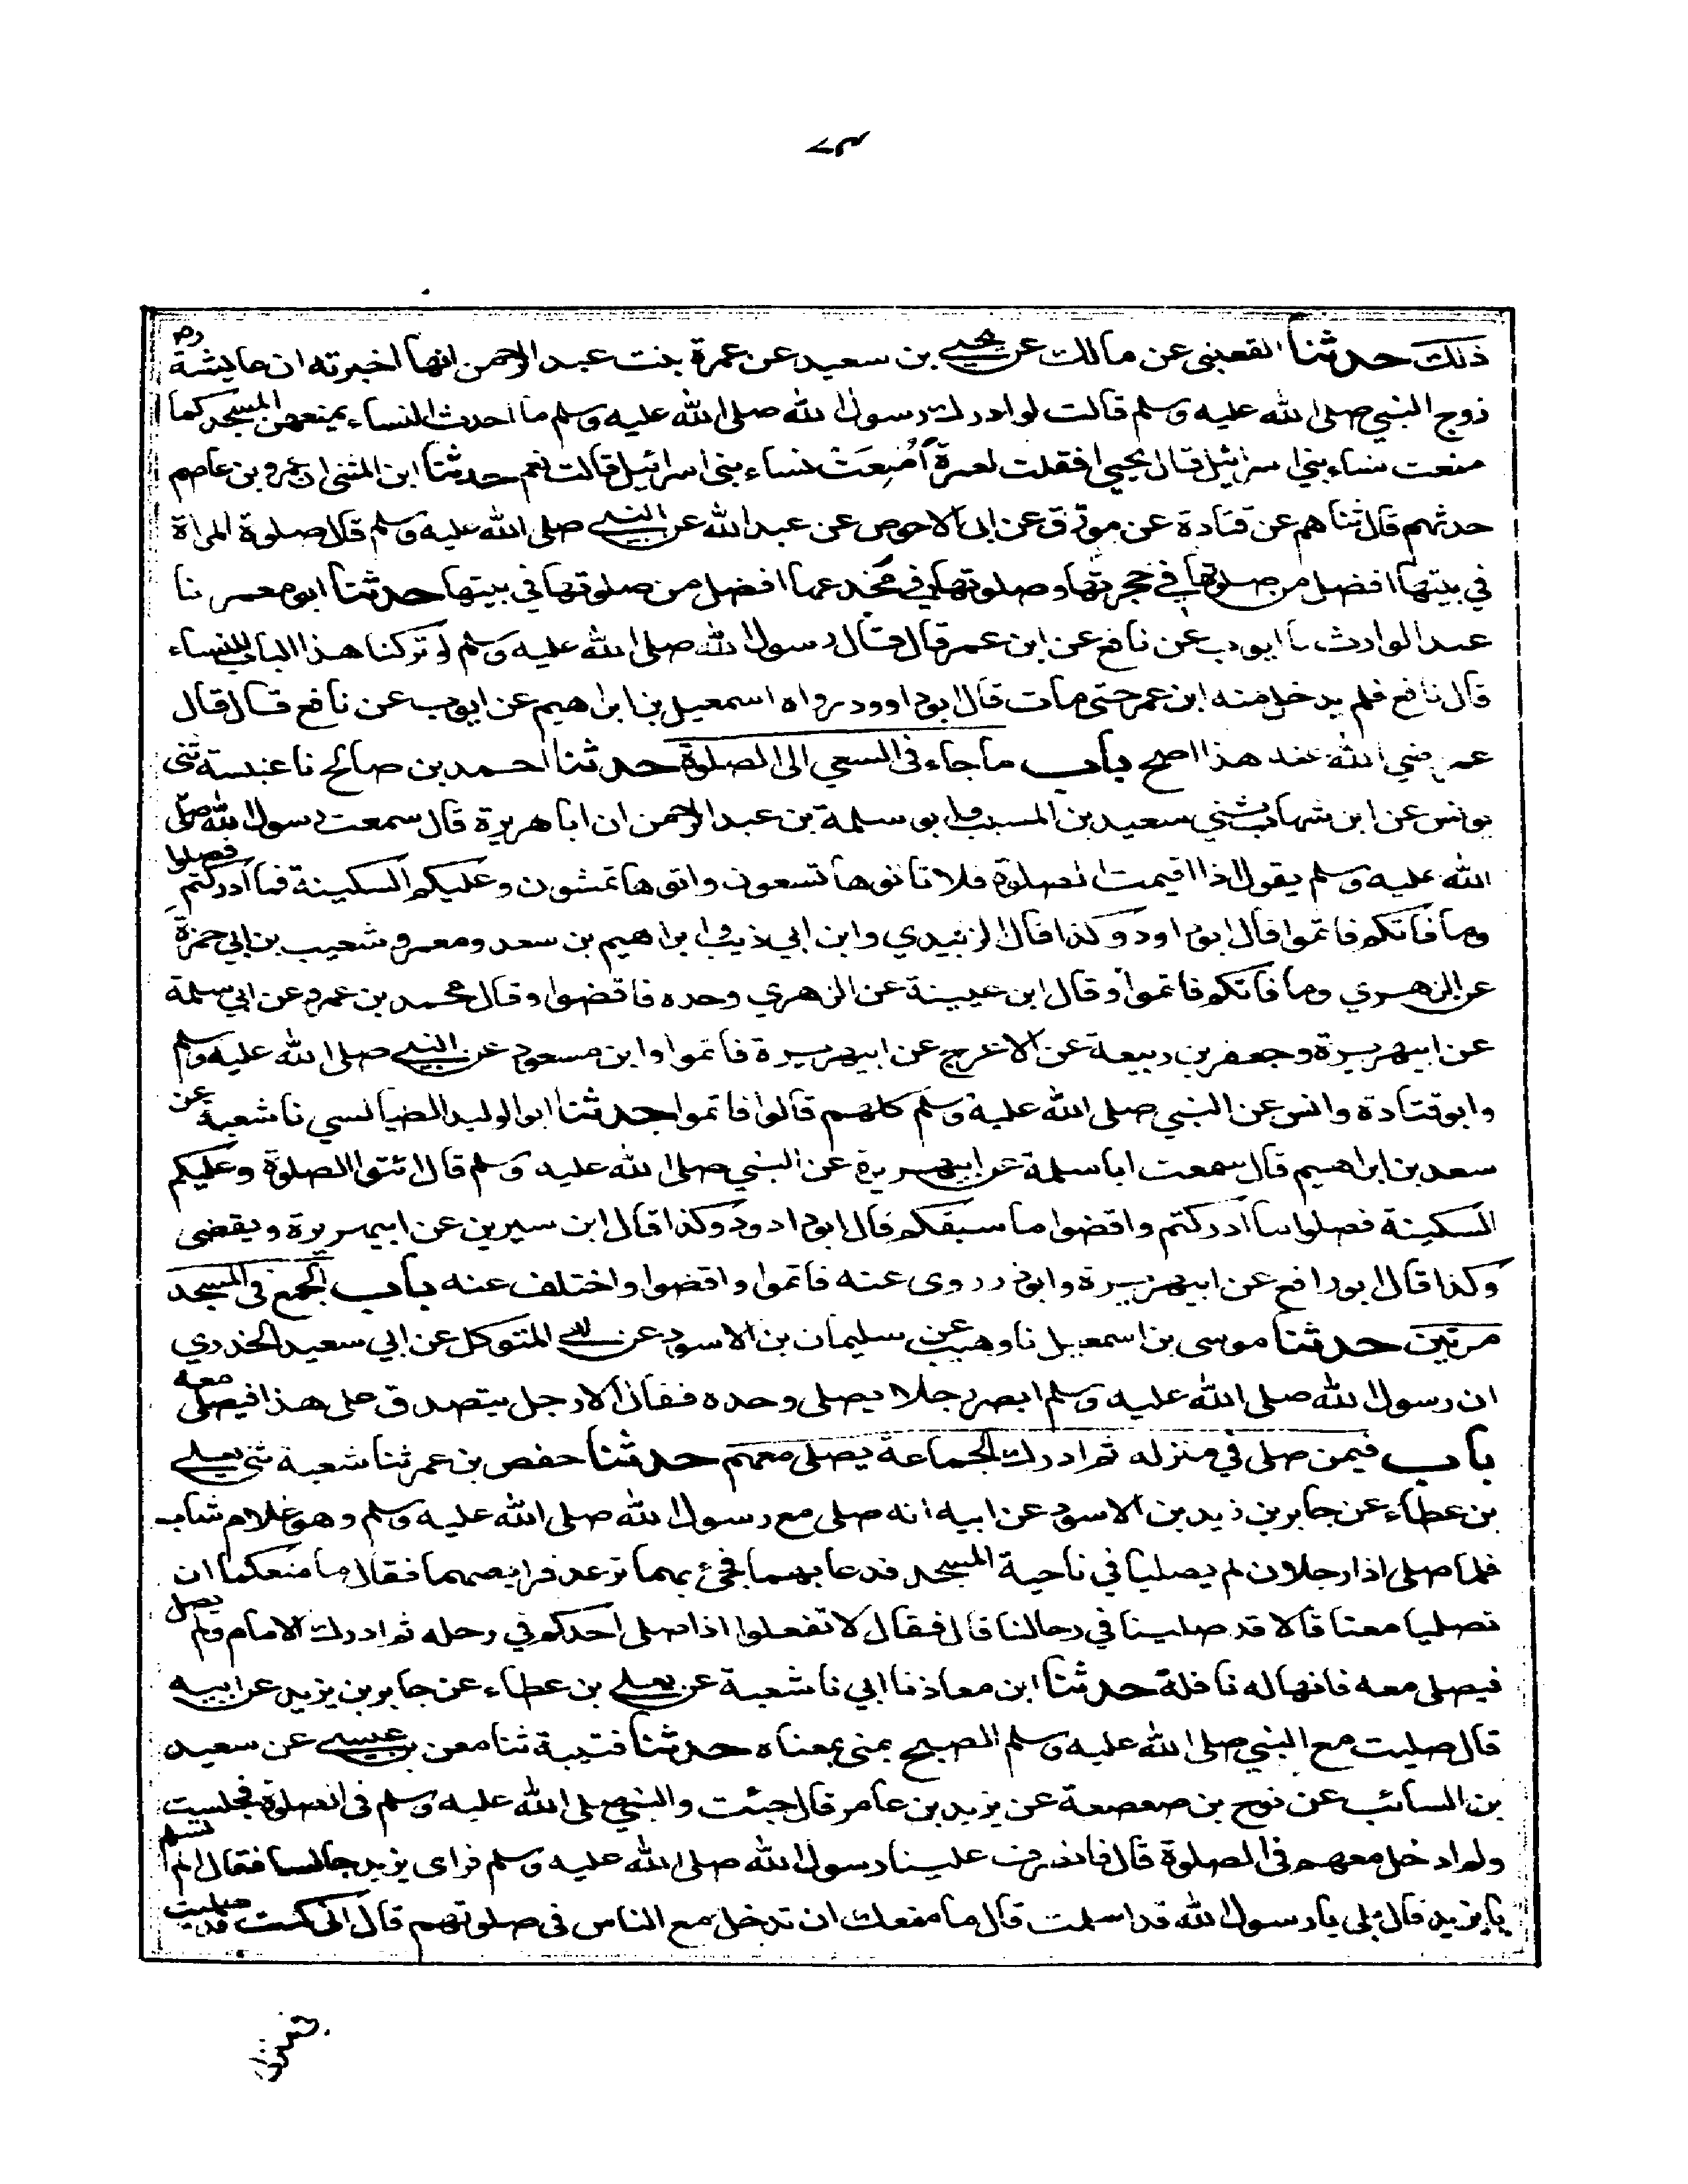 ٧٣
ذلك حدثنا القعنبى عن مالك عن يحيى بن سعيد عن عمرة بنت عبد الرحمن انها اخبرته ان عايشة رض
زوج النبي صلى الله عليه وسلم قالت لو ادرك رسول الله صلى الله عليه وسلم ما احدث النساء يمنعهن المسجد كما
منعت نساء بني اسرائيل قال يحيى فقلت لعمرة أمُنِعَتْ نساء بنى اسرائيل قالت نعم حدثنا ابن المثنى ان عمرو بن عاصم
حدثهم قال ثنا همم عن قتادة عن مورق عن ابى الاحوص عن عبد الله عن النبي صلى الله عليه وسلم قال صلوة المراة
في بيتها افضل من صلوتها في حجرتها وصلوتها في مخدعها افضل من صلوتها في بيتها حدثنا ابو معمر نا
عبد الوارث نا ايوب عن نافع عن ابن عمر قال قال رسول الله صلى الله عليه وسلم لو تركنا هذا الباب للنساء
قال نافع فلم يدخل منه ابن عمر حتى مات قال ابو داوود رواه اسمعيل بن ابراهيم عن ايوب عن نافع قال قال
عمر رضي الله عنه هذا اصح باب ما جاء فى السعي الى الصلوة حدثنا احمد بن صالح نا عنبسة ثنى
يونس عن ابن شهاب ثني سعيد بن المسيب وابو سلمة بن عبد الرحمن ان ابا هريرة قال سمعت رسول الله صلى
الله عليه وسلم يقول اذا اقيمت الصلوة فلا تاتوها تسعون واتوها تمشون وعليكم السكينة فما ادركتم فصلوا
وما فاتكم فاتموا قال ابو داود وكذا قال الزبيدي وابن ابي ذيب وابراهيم بن سعد ومعمر وشعيب بن ابي حمزة
عن الزهري وما فاتكم فاتموا وقال ابن عيينة عن الزهري وحده فاقضوا وقال محمد بن عمرو عن ابي سلمة
عن ابيهريرة وجعفر بن ربيعة عن الاعرج عن ابيهريرة فاتموا وابن مسعود عن النبي صلى الله عليه وسلم
وابو قتادة وانس عن النبي صلى الله عليه وسلم كلهم قالوا فاتموا حدثنا ابو الوليد الطيالسي نا شعبة عن
سعد بن ابراهيم قال سمعت ابا سلمة عن ابيهريرة عن النبي صلى الله عليه وسلم قال ائتوا الصلوة وعليكم
السكينة فصلوا ما ادركتم واقضوا ما سبقكم قال ابو داود وكذا قال ابن سيرين عن ابيهريرة ويقضى
وكذا قال ابو رافع عن ابيهريرة وابو ذر روى عنه فاتموا واقضوا واختلف عنه باب الجمع فى المسجد
مرتين حدثنا موسى بن اسمعيل نا وهيب عن سليمان بن الاسود عن ابي المتوكل عن ابي سعيد الخدري
ان رسول الله صلى الله عليه وسلم ابصر رجلا يصلى وحده فقال الا رجل يتصدق على هذا فيصلى معه
باب فيمن صلى في منزله ثم ادرك الجماعة يصلى معهم حدثنا حفص بن عمر ثنا شعبة ثنى يعلى
بن عطاء عن جابر بن زيد بن الاسود عن ابيه انه صلى مع رسول الله صلى الله عليه وسلم وهو غلام شاب
فلما صلى اذا رجلان لم يصليا في ناحية المسجد فدعا بهما فجئ بهما ترعد فرايصهما فقال ما منعكما ان
تصليا معنا قالا قد صلينا في رحالنا قال فقال لا تفعلوا اذا صلى احدكم في رحله ثم ادرك الامام ولم يصل
فيصلى معه فانها له نافلة حدثنا ابن معاذ نا ابي نا شعبة عن يعلى بن عطاء عن جابر بن يزيد عن ابيه
قال صليت مع النبي صلى الله عليه وسلم الصبح بمنى بمعناه حدثنا قتيبة ثنا معن بن عيسى عن سعيد
بن السائب عن نوح بن صعصعة عن يزيد بن عامر قال جئت والنبي صلى الله عليه وسلم فى الصلوة فجلست
ولم ادخل معهم فى الصلوة قال فانصرف علينا رسول الله صلى الله عليه وسلم فراى يزيد جالسا فقال الم تسلم
يا يزيد قال بلى يا رسول الله قد اسلمت قال ما منعك ان تدخل مع الناس فى صلوتهم قال انى كنت قد صليت